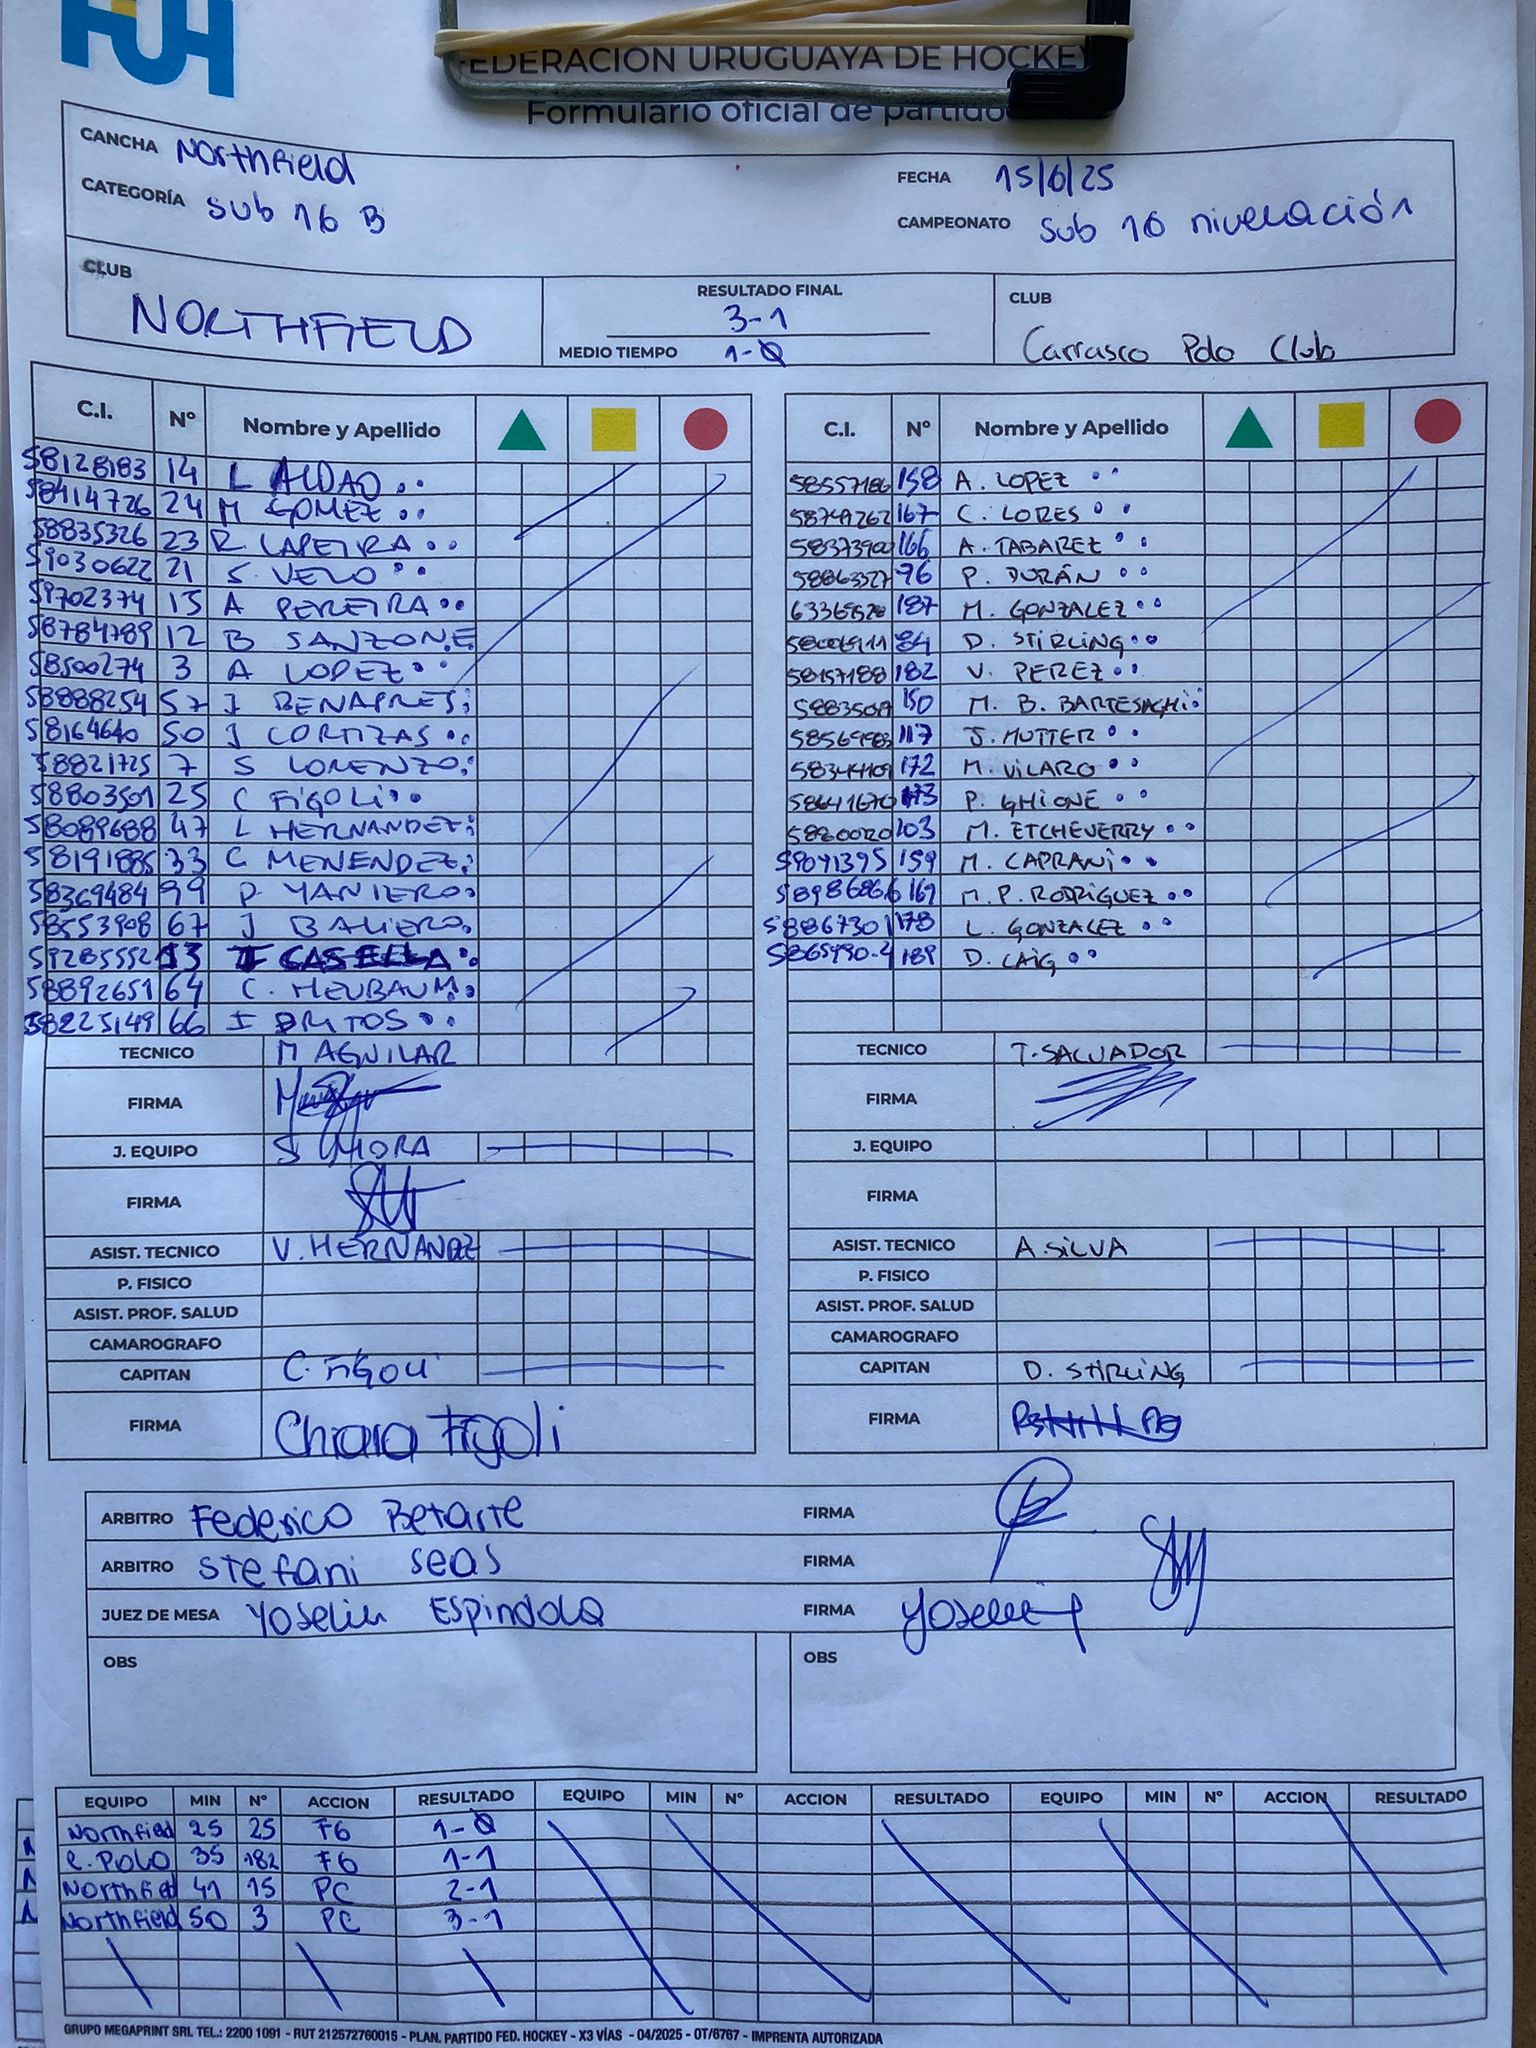 FUH
FEDERACION URUGUAYA DE HOCKEY
Formulario oficial de partido
CANCHA Northfield
FECHA 15/6/25
CATEGORÍA Sub 16 B
CAMPEONATO Sub 16 nivelación
CLUB NORTHFIELD
RESULTADO FINAL 3-1
MEDIO TIEMPO 1-0
CLUB Carrasco Polo Club
C.I. Nº Nombre y Apellido
58128183 14 L ALDAO
58414726 24 M GOMEZ
58835326 23 R. LAPEIRA
59030622 21 S. VELO
59702374 15 A PEREIRA
58784789 12 B SANZONE
58500274 3 A LOPEZ
58888254 57 J BENAPRES
58164640 50 J CORTIZAS
58821725 7 S LORENZO
58803501 25 C FIGOLI
58089688 47 L HERNANDEZ
58191885 33 C MENENDEZ
58369484 99 P YANIERO
58553908 67 J BALIERO
59285552 13 F CASELLA
58892651 64 C. HEUBAUM
58225149 66 I BRITOS
TECNICO M AGUILAR
FIRMA
J. EQUIPO S MORA
FIRMA
ASIST. TECNICO V. HERNANDEZ
P. FISICO
ASIST. PROF. SALUD
CAMAROGRAFO
CAPITAN C. FIGOLI
FIRMA Chiara Figoli
C.I. Nº Nombre y Apellido
58557186 158 A. LOPEZ
58749262 167 C. LORES
166 A. TABAREZ
58863327 76 P. DURÁN
187 M. GONZALEZ
84 D. STIRLING
58157188 182 V. PEREZ
150 M. B. BARTESAGHI
117 J. MUTTER
172 M. VILARO
58641670 173 P. GHIONE
103 M. ETCHEVERRY
59071395 159 M. CAPRANI
58986866 169 M. P. RODRIGUEZ
58867301 178 L. GONZALEZ
5865990-2 189 D. CAIG
TECNICO T. SALVADOR
FIRMA
J. EQUIPO
FIRMA
ASIST. TECNICO A. SILVA
P. FISICO
ASIST. PROF. SALUD
CAMAROGRAFO
CAPITAN D. STIRLING
FIRMA
ARBITRO Federico Betarte FIRMA
ARBITRO Stefani Seas FIRMA
JUEZ DE MESA Yoselin Espindola FIRMA
OBS
OBS
EQUIPO MIN Nº ACCION RESULTADO EQUIPO MIN Nº ACCION RESULTADO EQUIPO MIN Nº ACCION RESULTADO
Northfield 25 25 FG 1-0
C. POLO 35 182 FG 1-1
Northfield 41 15 PC 2-1
Northfield 50 3 PC 3-1
GRUPO MEGAPRINT SRL TEL.: 2200 1091 - RUT 212572760015 - PLAN. PARTIDO FED. HOCKEY - X3 VÍAS - 04/2025 - OT/6767 - IMPRENTA AUTORIZADA